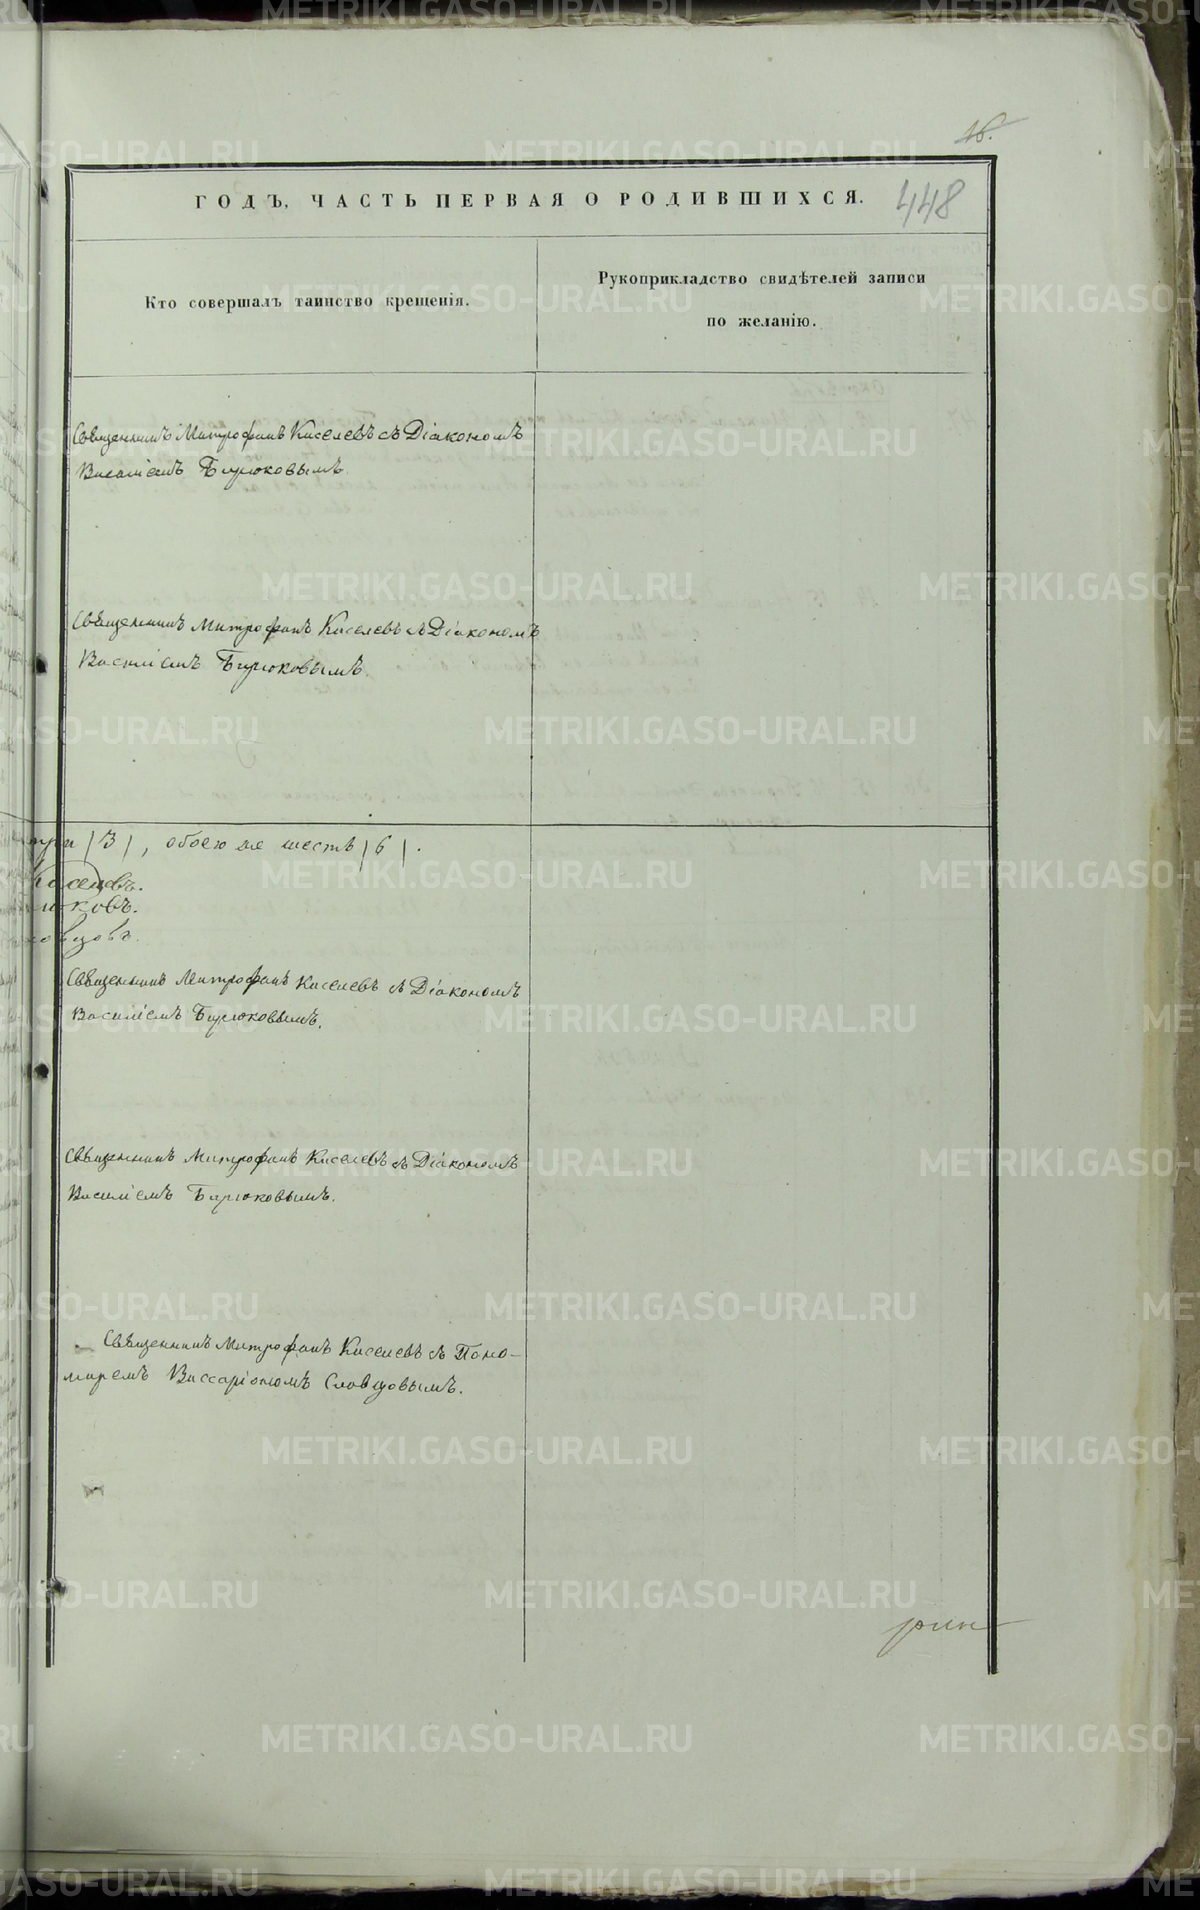 16.
ГОДЪ, ЧАСТЬ ПЕРВАЯ О РОДИВШИХСЯ.
448
Кто совершалъ таинство крещенія.
Рукоприкладство свидѣтелей записи
по желанію.
Священникъ Митрофанъ Киселевъ съ Діакономъ
Василіемъ Бирюковымъ.
Священникъ Митрофанъ Киселевъ съ Діакономъ
Василіемъ Бирюковымъ.
три /3/, обоего же шесть /6/.
Киселевъ.
юковъ.
овцовъ.
Священникъ Митрофанъ Киселевъ съ Діакономъ
Василіемъ Бирюковымъ.
Священникъ Митрофанъ Киселевъ съ Діакономъ
Василіемъ Бирюковымъ.
Священникъ Митрофанъ Киселевъ съ Поно-
маремъ Виссаріономъ Словцовымъ.
METRIKI.GASO-URAL.RU